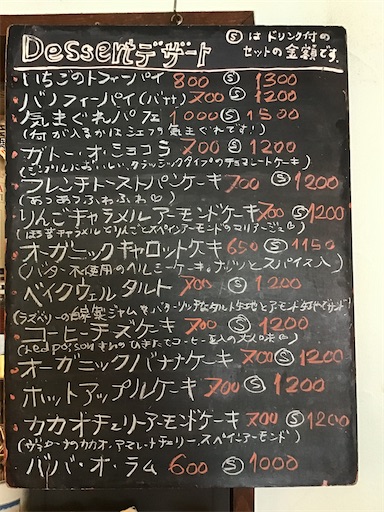 Dessert デザート
Ⓢは ドリンク付の
セットの金額です。
いちごのトフィーパイ 800 Ⓢ 1300
バノフィーパイ(バナナ) 700 Ⓢ 1200
気まぐれパフェ 1000 Ⓢ 1500
(何が入るかはシェフの気まぐれです!)
ガトー・オ・ショコラ 700 Ⓢ 1200
(シンプルにおいしい、クラッシックタイプのチョコレートケーキ)
フレンチトーストパンケーキ 700 Ⓢ 1200
(あつあつふわふわ♡)
りんごキャラメルアーモンドケーキ 700 Ⓢ 1200
(キャラメルとりんごとスペインアーモンドのマリアージュ♡)
オーガニックキャロットケーキ 650 Ⓢ 1150
(バター不使用のヘルシーケーキ。ナッツとスパイス入)
ベイクウェルタルト 700 Ⓢ 1200
(ラズベリーの自家製ジャムをバターリッチなタルト生地とアーモンド生地でサンド)
コーヒーチーズケーキ 700 Ⓢ 1200
(Led poisonさんのひきたてコーヒー豆入の大人の味♡)
オーガニックバナナケーキ 700 Ⓢ 1200
ホットアップルケーキ 700 Ⓢ 1200
カカオチェリーアーモンドケーキ 700 Ⓢ 1200
(カカオ、アマレーナチェリー、スペインアーモンド)
ババ・オ・ラム 600 Ⓢ 1000